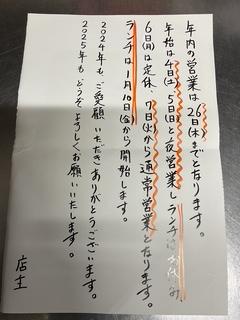 年内の営業は26日(木)までとなります。
年始は4日(土)5日(日)と夜営業しランチはお休み
6日(月)は定休 7日(火)から通常営業となります。
ランチは1月10日(金)から開始します。
2024年もご愛顧いただきありがとうございます。
2025年もどうぞよろしくお願いいたします。
店主